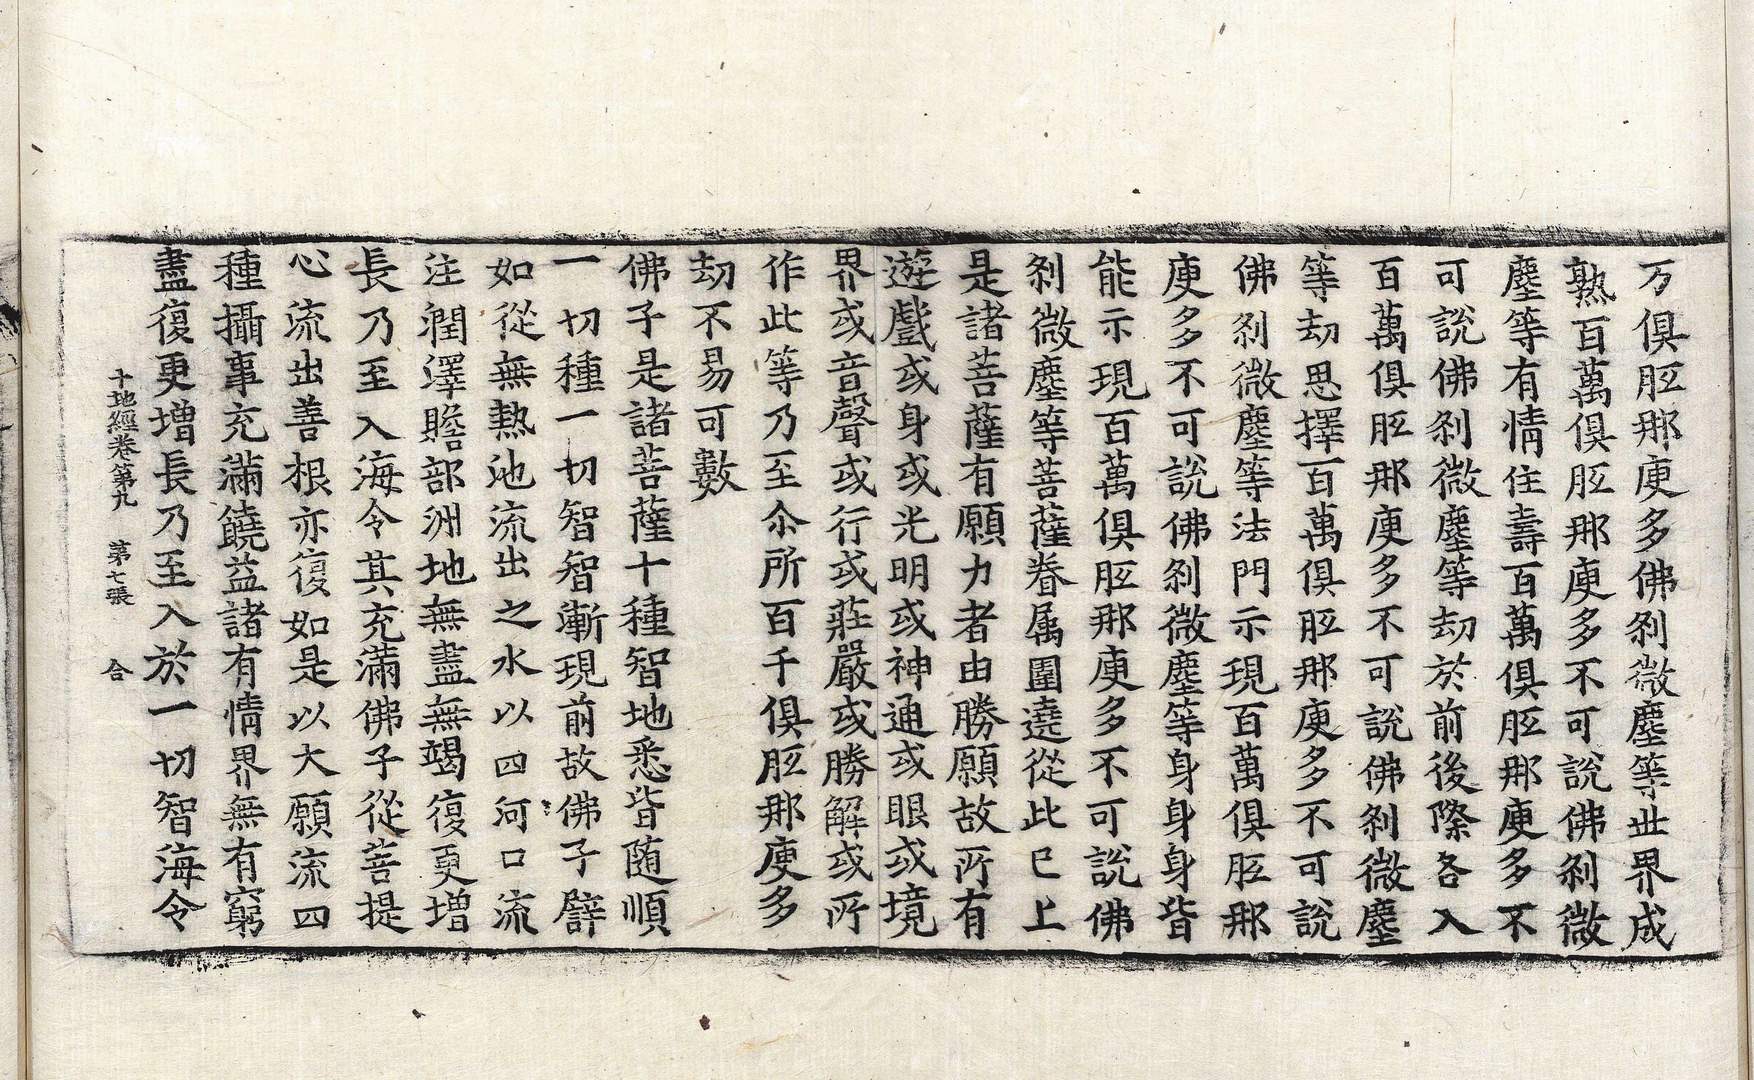 万俱胝那庾多佛剎微塵等世界成
熟百萬俱胝那庾多不可說佛剎微
塵等有情住壽百萬俱胝那庾多不
可說佛剎微塵等劫於前後際各入
百萬俱胝那庾多不可說佛剎微塵
等劫思擇百萬俱胝那庾多不可說
佛剎微塵等法門示現百萬俱胝那
庾多不可說佛剎微塵等身身身皆
能示現百萬俱胝那庾多不可說佛
剎微塵等菩薩眷属圍遶從此已上
是諸菩薩有願力者由勝願故所有
遊戲或身或光明或神通或眼或境
界或音聲或行或莊嚴或勝解或所
作此等乃至尒所百千俱胝那庾多
劫不易可數
佛子是諸菩薩十種智地悉皆随順
一切種一切智智漸現前故佛子譬
如從無熱池流出之水以四河口流
注潤澤贍部洲地無盡無竭復更增
長乃至入海令其充滿佛子從菩提
心流出善根亦復如是以大願流四
種攝事充滿饒益諸有情界無有窮
盡復更增長乃至入於一切智海令
十地經卷第九 第七張 合